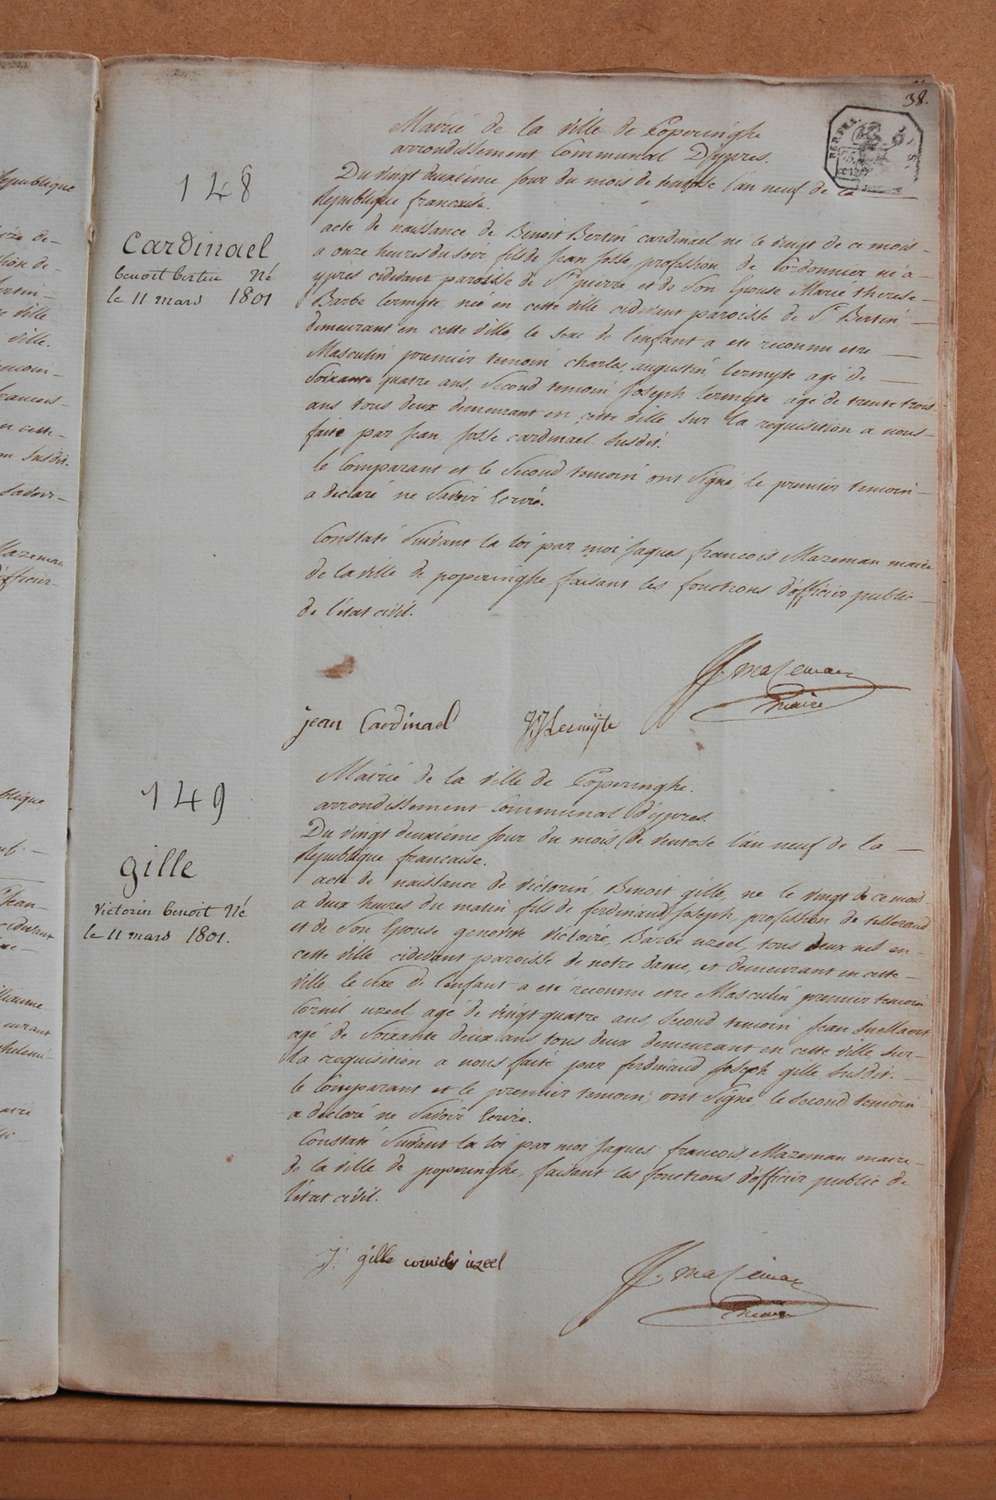 38.
REP. FRA.
148
Cardinael
benoit bertin Né
le 11 mars 1801
Mairié de la ville de Poperinghe
arrondissement Communal D'ypres.
Du vingt deuxieme jour du mois de ventose l'an neuf de la
Republique francaise.
acte de naissance de Benoit Bertin cardinael né le vingt de ce mois
a onze heures du soir fils de jean josse profession de Cordonnier né a
ypres cidevant paroisse de St pierre et de Son Epouse Marié therese
Barbe Lermyte née en cette ville cidevant paroisse de St Bertin
demeurant en cette ville, le sexe de l'enfant a eté reconnu etre
Masculin premier temoin charles augustin Lermyte agé de
Soixante quatre ans, Second temoin joseph Lermyte agé de trente trois
ans tous deux demeurant en cette ville sur la requisition a nous
faite par jean josse cardinael Susdit.
le Comparant et le Second temoin ont Signé le premier temoin
a declaré ne Savoir Ecrire.
Constaté Suivant la loi par moi jaques francois Mazeman maire
de la ville de poperinghe faisant les fonctions d'officier public
de l'état civil.
Mazeman
maire
jean Cardinael
JJ Lermijte
149
gille
victorin benoit Né
le 11 mars 1801.
Mairié de la ville de Poperinghe.
arrondissement Communal D'ypres
Du vingt deuxiéme jour du mois de ventose l'an neuf de la
Republique francaise.
acte de naissance de victorin Benoit gille, né le vingt de ce mois
a deux heures du matin fils de ferdinand joseph, profession de
et de Son Epouse genevive victoire Barbe uzeel, tous deux nés en
cette ville cidevant paroisse de notre dame, et demeurant en cette
ville le Sexe de l'enfant a eté reconnu etre Masculin premier temoin
Cornil uzeel agé de vingt quatre ans Second temoin jean
agé de Soixante deux ans tous deux demeurant en cette ville Sur
la requisition a nous faite par ferdinand joseph gille Susdit.
le Comparant et le premier temoin ont Signé le Second temoin
a declaré ne Savoir Ecrire.
Constaté Suivant la loi par moi jaques francois Mazeman maire
de la ville de poperinghe, faisant les fonctions d'officier public de
l'état civil.
J: gille cornielis uzeel
Mazeman
maire